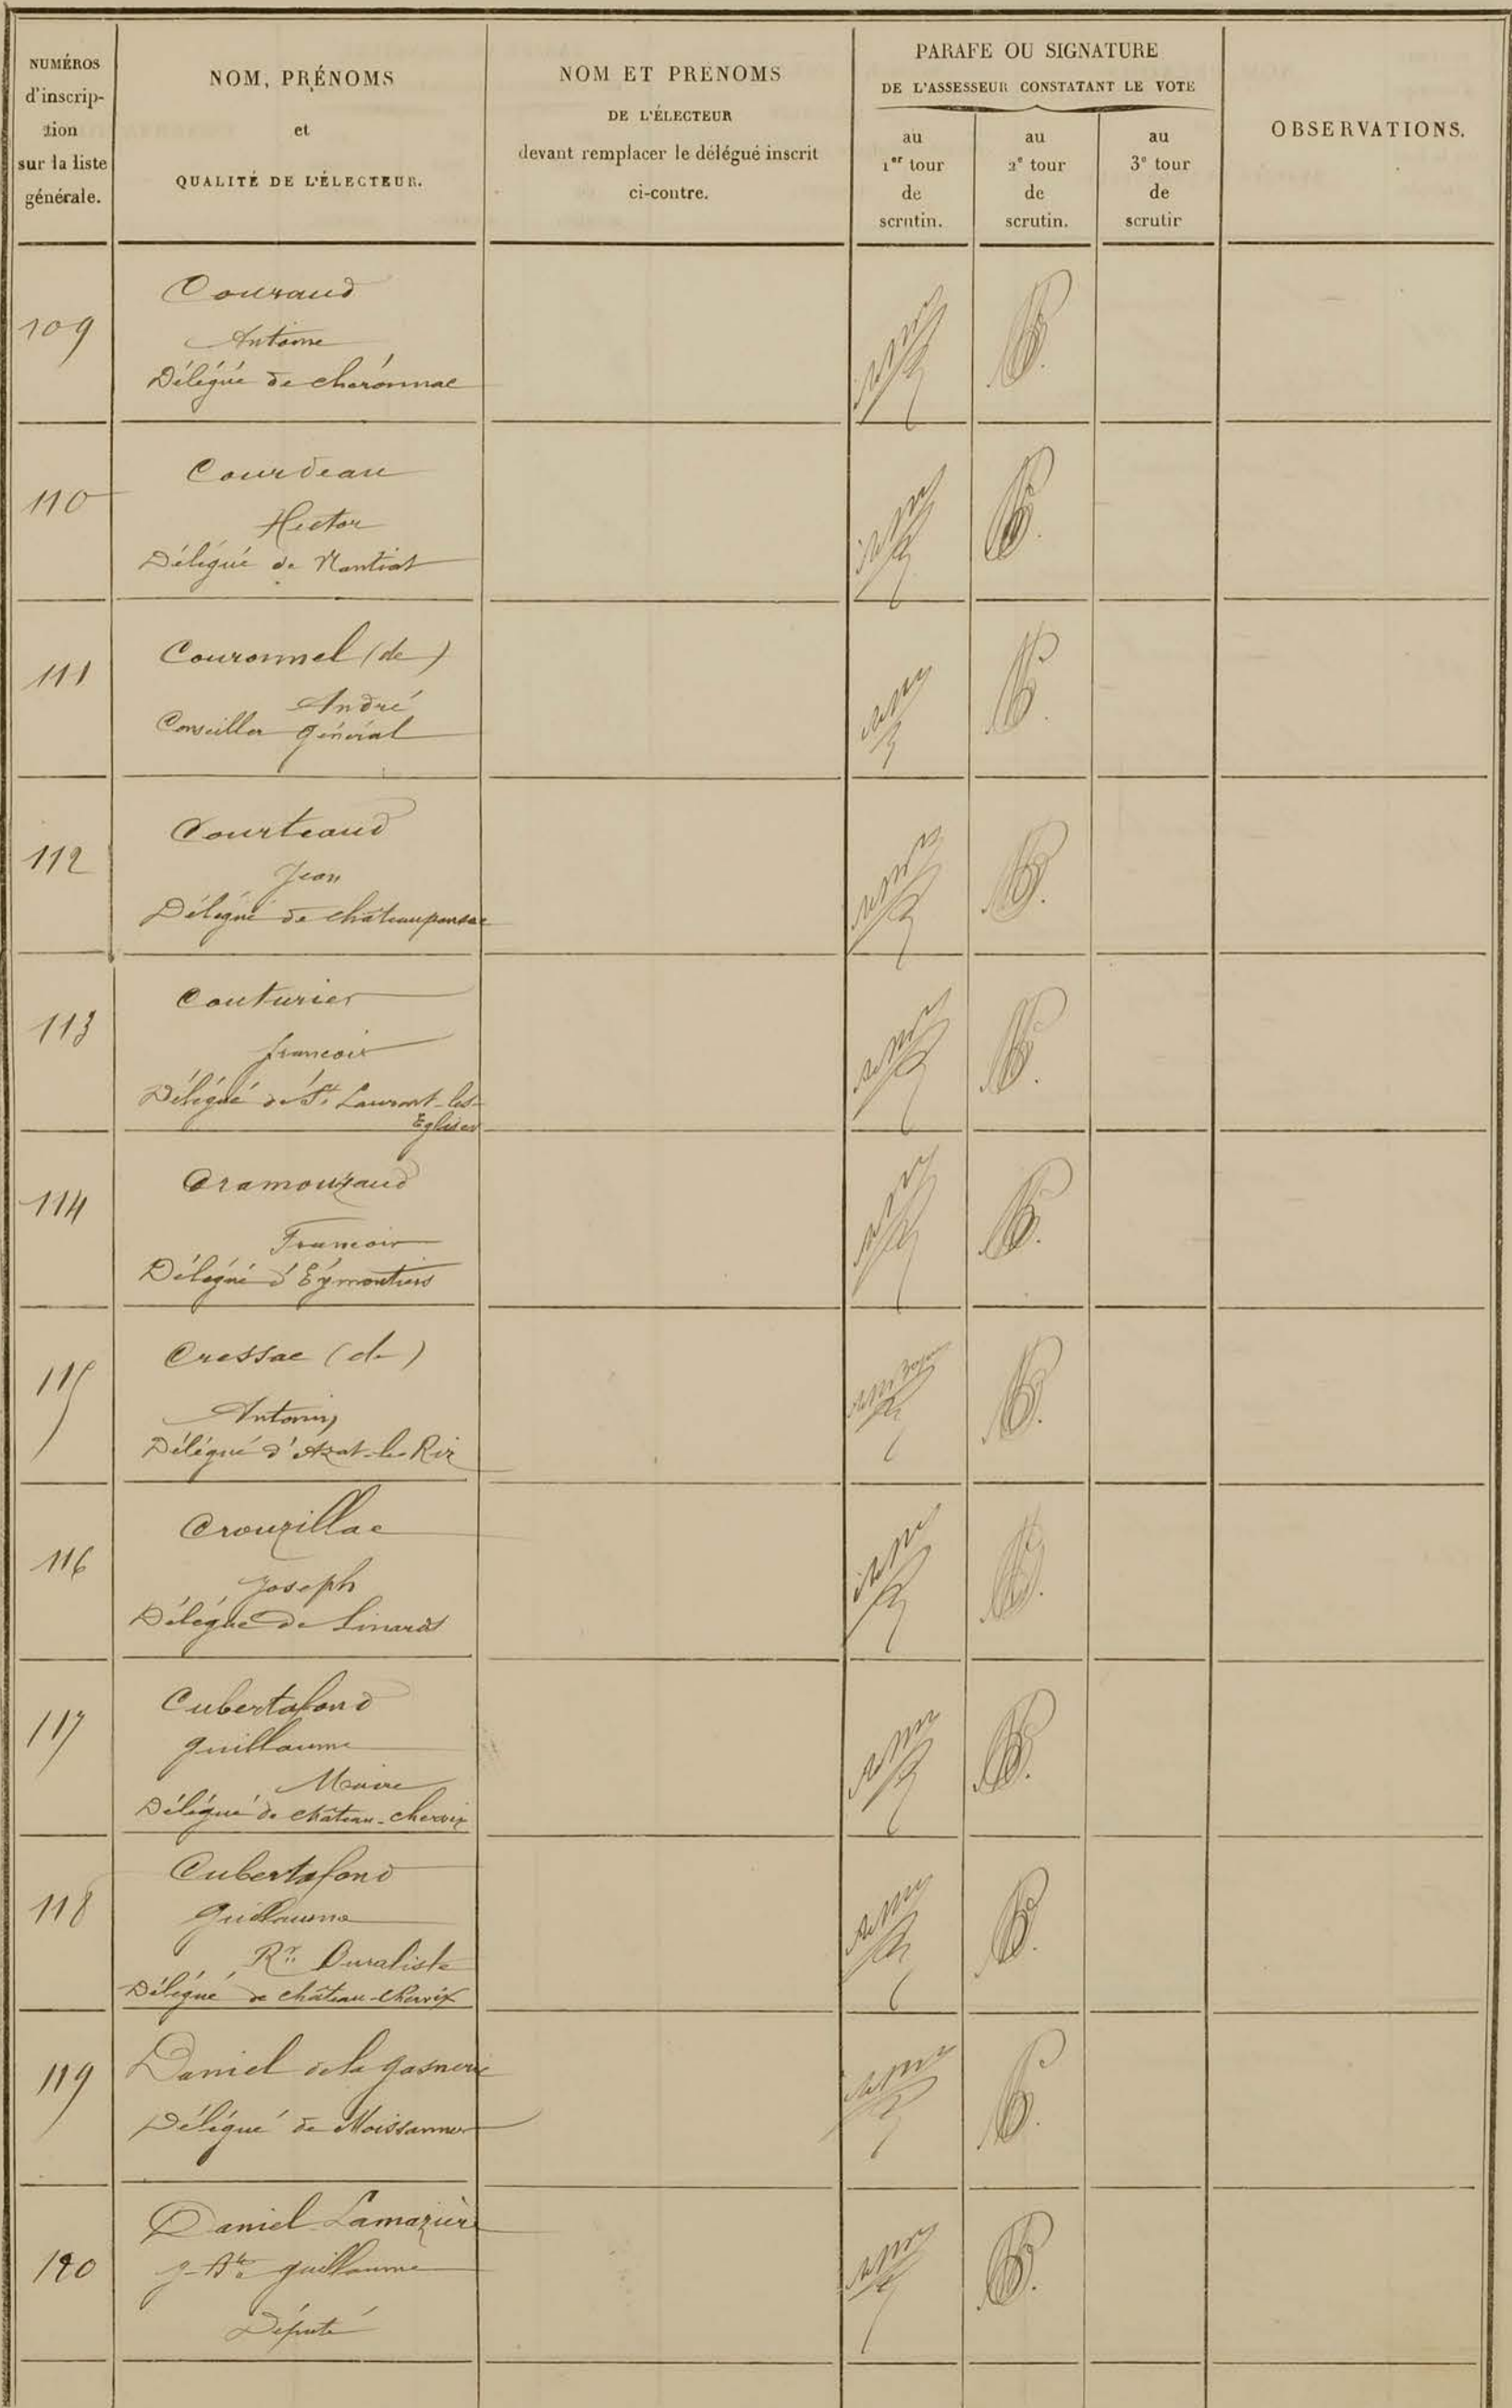 NUMÉROS
d'inscrip-
tion
sur la liste
générale.
NOM, PRÉNOMS
et
QUALITÉ DE L'ÉLECTEUR.
NOM ET PRENOMS
DE L'ÉLECTEUR
devant remplacer le délégué inscrit
ci-contre.
PARAFE OU SIGNATURE
DE L'ASSESSEUR CONSTATANT LE VOTE
au
1er tour
de
scrutin.
au
2e tour
de
scrutin.
au
3e tour
de
scrutin
OBSERVATIONS.
109
Couraud
Antoine
Délégué de cheronnac
110
Courdeau
Hector
Délégué de Nantiat
111
Couronnel (de)
André
Conseiller général
112
Courteaud
Jean
Délégué de châteauponsac
113
Couturier
francois
Délégué de St Laurent-les-
Eglises
114
Cramouzaud
Francois
Délégué d'Eymoutiers
115
Cressac (de)
Antonin
Délégué d'Azat-le-Riz
116
Crouzillac
Joseph
Délégué de Linards
117
Cubertafond
guillaume
Maire
Délégué de château-chervix
118
Cubertafond
Guillaume
Buraliste
Délégué de château-chervix
119
Daniel de la gasnerie
Délégué de Moissannes
120
Daniel Lamazière
J-Bte guillaume
Député